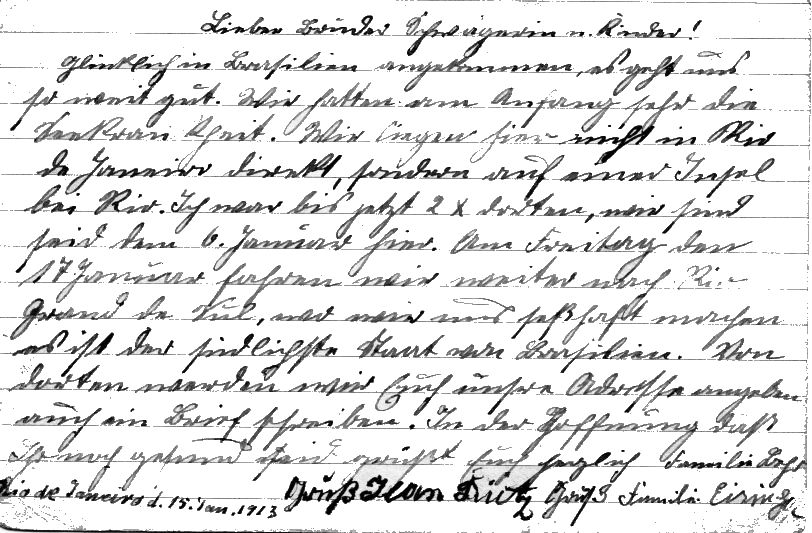 Lieber Bruder Schwägerin u. Kinder!
Glücklich in Brasilien angekommen, es geht uns
so weit gut. Wir hatten am Anfang sehr die
Seekrankheit. Wir liegen hier nicht in Rio
de Janeiro direkt, sondern auf einer Insel
bei Rio. Ich war bis jetzt 2 x dorten, wir sind
seid dem 6. Januar hier. Am Freitag den
17 Januar fahren wir weiter nach Rio
Grand de Sul, wo wir uns seßhaft machen
es ist der südlichste Staat von Brasilien. Von
dorten werden wir Euch unsre Adresse angeben
auch ein Brief schreiben. In der Hoffnung daß
Ihr noch gesund seid grüßt Euch herzlich Familie
Rio de Janeiro d. 15. Jan. 1913 Gruß Jean Fritz Gruß Familie